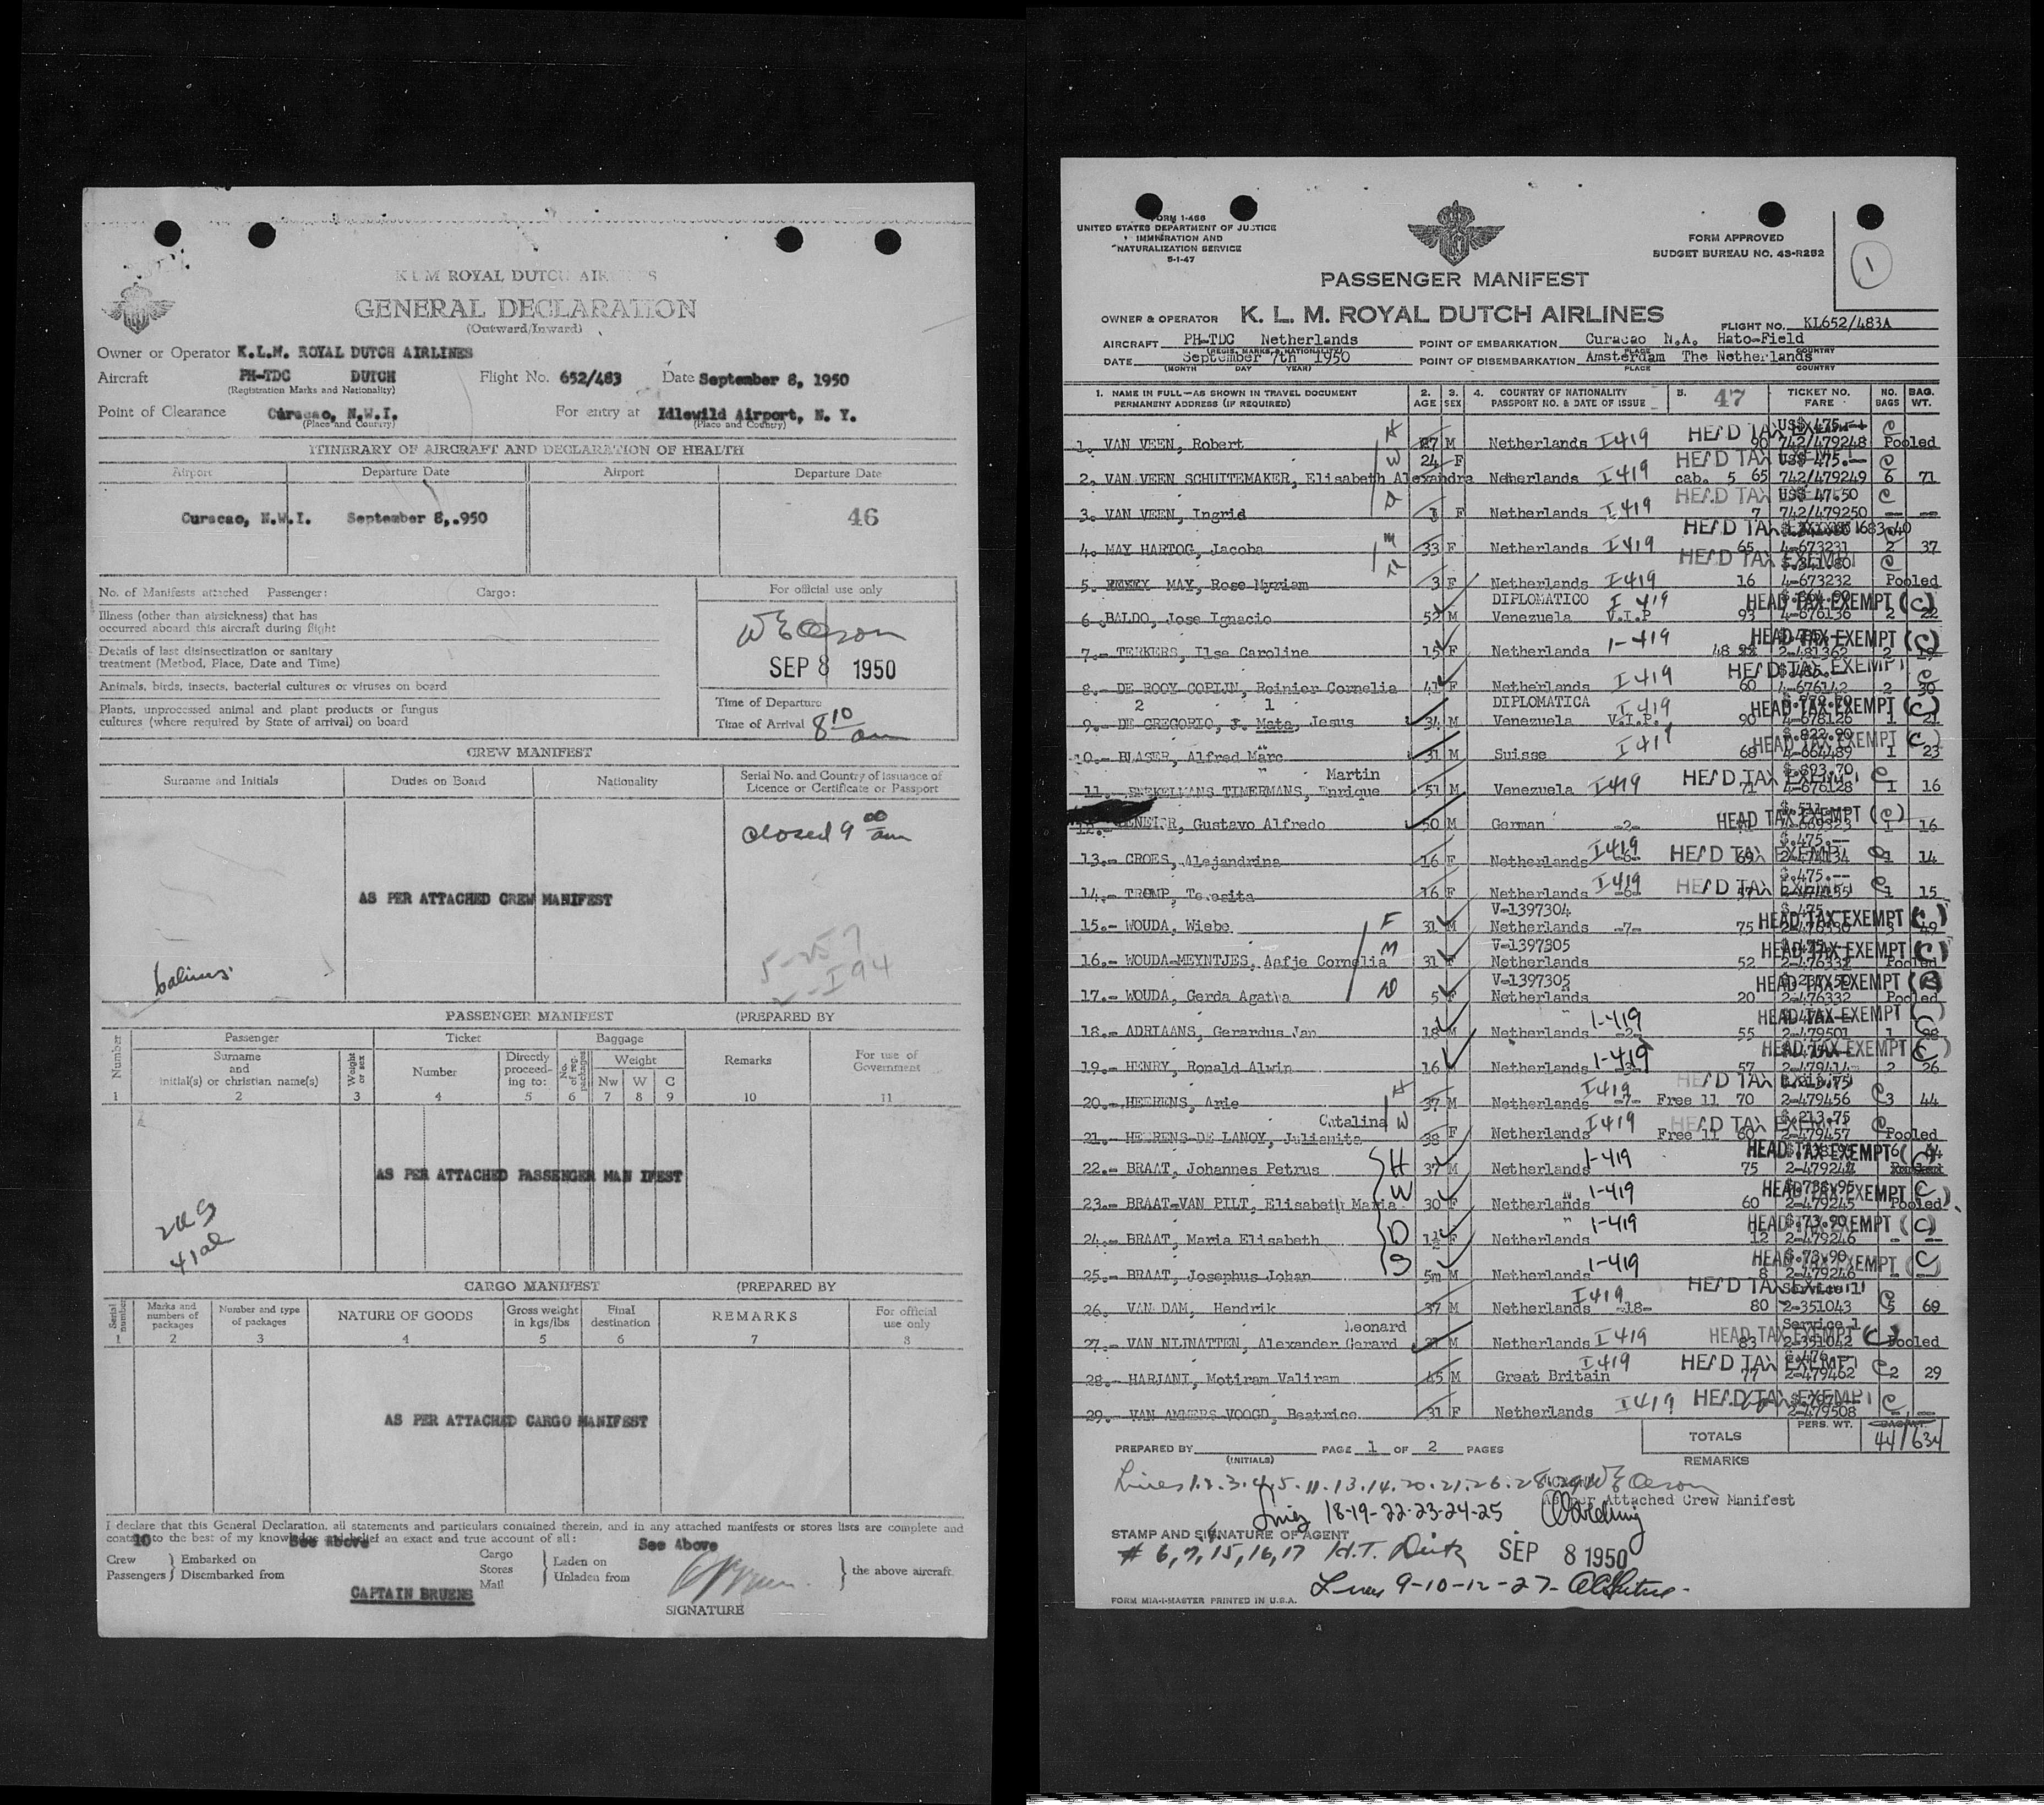 K L M ROYAL DUTCH AIRLINES
GENERAL DECLARATION
(Outward/Inward)
Owner or Operator K.L.M. ROYAL DUTCH AIRLINES
Aircraft PH-TDC DUTCH Flight No. 652/483 Date September 8, 1950
(Registration Marks and Nationality)
Point of Clearance Curacao, N.W.I. For entry at Idlewild Airport, N. Y.
(Place and Country) (Place and Country)
ITINERARY OF AIRCRAFT AND DECLARATION OF HEALTH
Airport Departure Date Airport Departure Date
Curacao, N.W.I. September 8,.950 46
No. of Manifests attached Passenger: Cargo: For official use only
Illness (other than airsickness) that has
occurred aboard this aircraft during flight
Details of last disinsectization or sanitary
treatment (Method, Place, Date and Time)
SEP 8 1950
Animals, birds, insects, bacterial cultures or viruses on board
Plants, unprocessed animal and plant products or fungus
cultures (where required by State of arrival) on board
Time of Departure
Time of Arrival 8 10 am
CREW MANIFEST
Surname and Initials Duties on Board Nationality Serial No. and Country of Issuance of
Licence or Certificate or Passport
closed 9 00 am
AS PER ATTACHED CREW MANIFEST
5-257
I 94
PASSENGER MANIFEST (PREPARED BY
Number Passenger Ticket Baggage Remarks For use of
Government
Surname
and
initial(s) or christian name(s) Weight or sex Number Directly
proceed-
ing to: No. of reg. packages Weight
Nw W C
1 2 3 4 5 6 7 8 9 10 11
AS PER ATTACHED PASSENGER MAN IFEST
41al
CARGO MANIFEST (PREPARED BY
Serial number Marks and
numbers of
packages Number and type
of packages NATURE OF GOODS Gross weight
in kgs/lbs Final
destination REMARKS For official
use only
1 2 3 4 5 6 7 8
AS PER ATTACHED CARGO MANIFEST
I declare that this General Declaration, all statements and particulars contained therein, and in any attached manifests or stores lists are complete and
to the best of my knowledge and belief an exact and true account of all:
10 See Above See Above
Crew
Passengers } Embarked on
Disembarked from
Cargo
Stores
Mail } Laden on
Unladen from } the above aircraft.
CAPTAIN BRUENS
SIGNATURE
FORM 1-466
UNITED STATES DEPARTMENT OF JUSTICE
IMMIGRATION AND
NATURALIZATION SERVICE
5-1-47
FORM APPROVED
BUDGET BUREAU NO. 43-R252
1
PASSENGER MANIFEST
OWNER & OPERATOR K. L. M. ROYAL DUTCH AIRLINES
FLIGHT NO. KL652/483A
AIRCRAFT PH-TDC Netherlands POINT OF EMBARKATION Curacao N.A. Hato-Field
(REGIS. MARKS & NATIONALITY) PLACE COUNTRY
DATE September 7th 1950 POINT OF DISEMBARKATION Amsterdam The Netherlands
(MONTH DAY YEAR) PLACE COUNTRY
1. NAME IN FULL—AS SHOWN IN TRAVEL DOCUMENT
PERMANENT ADDRESS (IF REQUIRED) 2.
AGE 3.
SEX 4. COUNTRY OF NATIONALITY
PASSPORT NO. & DATE OF ISSUE 5. 47 TICKET NO.
FARE NO.
BAGS BAG.
WT.
1. VAN VEEN, Robert H 27 M Netherlands I419 HEAD TAX EXEMPT 90 US$ 475.-- 742/479248 C Pooled
2. VAN VEEN SCHUITEMAKER, Elisabeth Alexandra W 24 F Netherlands I419 HEAD TAX cab. 5 65 US$ 475.— 742/479249 C 6 71
3. VAN VEEN, Ingrid D F Netherlands I419 HEAD TAX 7 US$ 47.50 742/479250 C — —
4. MAY HARTOG, Jacoba M 33 F Netherlands I419 HEAD TAX 65 4-673231 2 37
5. MAY, Rose Myriam 3 F Netherlands I419 HEAD TAX EXEMPT 16 4-673232 C Pooled
6. BALDO, Jose Ignacio 52 M DIPLOMATICO Venezuela V.I.P. I 419 93 HEAD TAX EXEMPT (C) 4-676136 2 22
7.- TERKERS, Ilse Caroline 15 F Netherlands 1-419 48 HEAD TAX EXEMPT (C) 2-481362 2
8.- DE ROOY COPIJN, Reinier Cornelia 41 F Netherlands I 419 HEAD TAX EXEMPT 60 4-676142 2 C 30
2 1
9.- DE GREGORIO, J. Mata, Jesus 34 M DIPLOMATICA Venezuela V.I.P. I419 90 HEAD TAX EXEMPT (C) 4-678126 1 21
10.- BLASER, Alfred Marc 31 M Suisse I 419 68 HEAD TAX EXEMPT (C) $.822.90 4-664489 1 23
Martin
11.- TIMERMANS, Enrique 51 M Venezuela I419 HEAD TAX EXEMPT 71 $.893.70 4-676128 C 1 16
12.- Gustavo Alfredo 50 M German -2- HEAD TAX EXEMPT (C) 1 16
13.- CROES, Alejandrina 16 F Netherlands I419 -6- HEAD TAX EXEMPT 69 $.475.-- 2-474134 C 1 14
14.- TROMP, Teresita 16 F Netherlands I419 -6- HEAD TAX EXEMPT 57 $.475.-- 2-474135 C 1 15
15.- WOUDA, Wiebe F 31 M V-1397304 Netherlands -7- 75 HEAD TAX EXEMPT (C) 2-476330 3 49
16.- WOUDA-MEYNTJES, Aafje Cornelia M 31 F V-1397305 Netherlands 52 HEAD TAX EXEMPT (C) 2-476331 Pooled
17.- WOUDA, Gerda Agatha D 5 F V-1397305 Netherlands 20 HEAD TAX EXEMPT 2-476332 Pooled
18.- ADRIAANS, Gerardus Jan 18 M Netherlands 1-419 -2- 55 HEAD TAX EXEMPT (C) 2-479501 1
19.- HENRY, Ronald Alwin 16 M Netherlands 1-419 57 HEAD TAX EXEMPT (C) 2-479414 2 26
20.- HEERENS, Arie H 37 M Netherlands I419 -7- Free 11 70 HEAD TAX $.213.75 2-479456 C 3 44
Catalina
21.- HEERENS-DE LANOY, Julianita W 38 F Netherlands I419 Free 11 60 HEAD TAX EXEMPT $.213.75 2-479457 C Pooled
22.- BRAAT, Johannes Petrus H 37 M Netherlands 1-419 75 HEAD TAX EXEMPT (C) 2-479244 6 44
23.- BRAAT-VAN PILT, Elisabeth Maria W 30 F Netherlands 1-419 60 HEAD TAX EXEMPT (C) $.738.95 2-479245 Pooled
24.- BRAAT, Maria Elisabeth D 1½ F Netherlands 1-419 12 HEAD TAX EXEMPT (C) $.73.90 2-479246 - --
25.- BRAAT, Josephus Johan S 5m M Netherlands 1-419 8 HEAD TAX EXEMPT (C) $.73.90 2-479246 - --
26. VAN DAM, Hendrik 37 M Netherlands I419 -18- HEAD TAX 80 Service 1 2-351043 C 5 69
Leonard
27.- VAN NIJNATTEN, Alexander Gerard M Netherlands I419 HEAD TAX EXEMPT (C) 83 Service 1 2-351042 Pooled
28.- HARJANI, Motiram Valiram 45 M Great Britain I419 HEAD TAX EXEMPT 77 $.476.-- 2-479462 C 2 29
29.- VAN AMMERS VOOGD, Beatrice 31 F Netherlands I419 HEAD TAX EXEMPT 2-479508 C - --
PREPARED BY PAGE 1 OF 2 PAGES
(INITIALS)
TOTALS PERS. WT. BAG. WT. 44/634
REMARKS
Lines 1.2.3.4.5.11.13.14.20.21.26.28.29
As per Attached Crew Manifest
Lines 18-19-22-23-24-25
STAMP AND SIGNATURE OF AGENT
# 6,7,15,16,17 H.T. SEP 8 1950
Lines 9-10-12-27-
FORM MIA-I-MASTER PRINTED IN U.S.A.